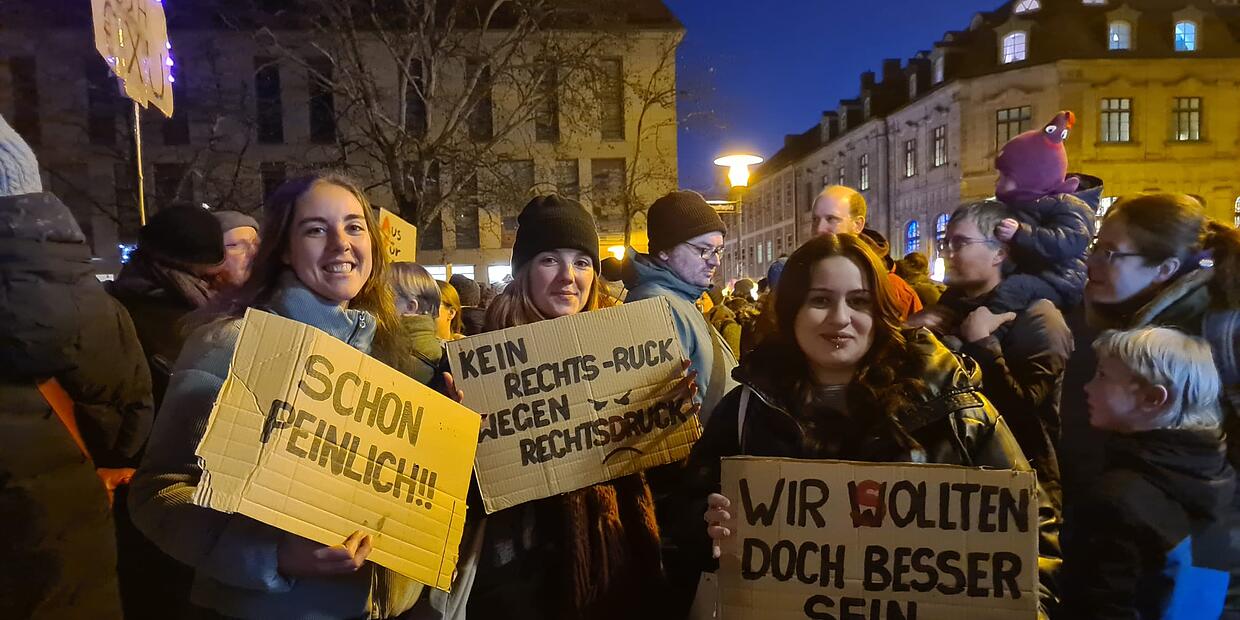 SCHON
PEINLICH!!
KEIN
RECHTS-RUCK
WEGEN
RECHTSDRUCK
WIR WOLLTEN
DOCH BESSER
SEIN